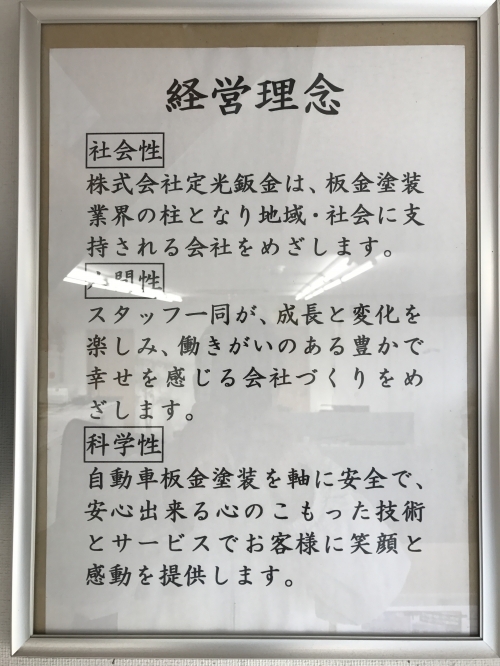 経営理念
社会性
株式会社定光鈑金は、板金塗装
業界の柱となり地域・社会に支
持される会社をめざします。
人間性
スタッフ一同が、成長と変化を
楽しみ、働きがいのある豊かで
幸せを感じる会社づくりをめ
ざします。
科学性
自動車板金塗装を軸に安全で、
安心出来る心のこもった技術
とサービスでお客様に笑顔と
感動を提供します。